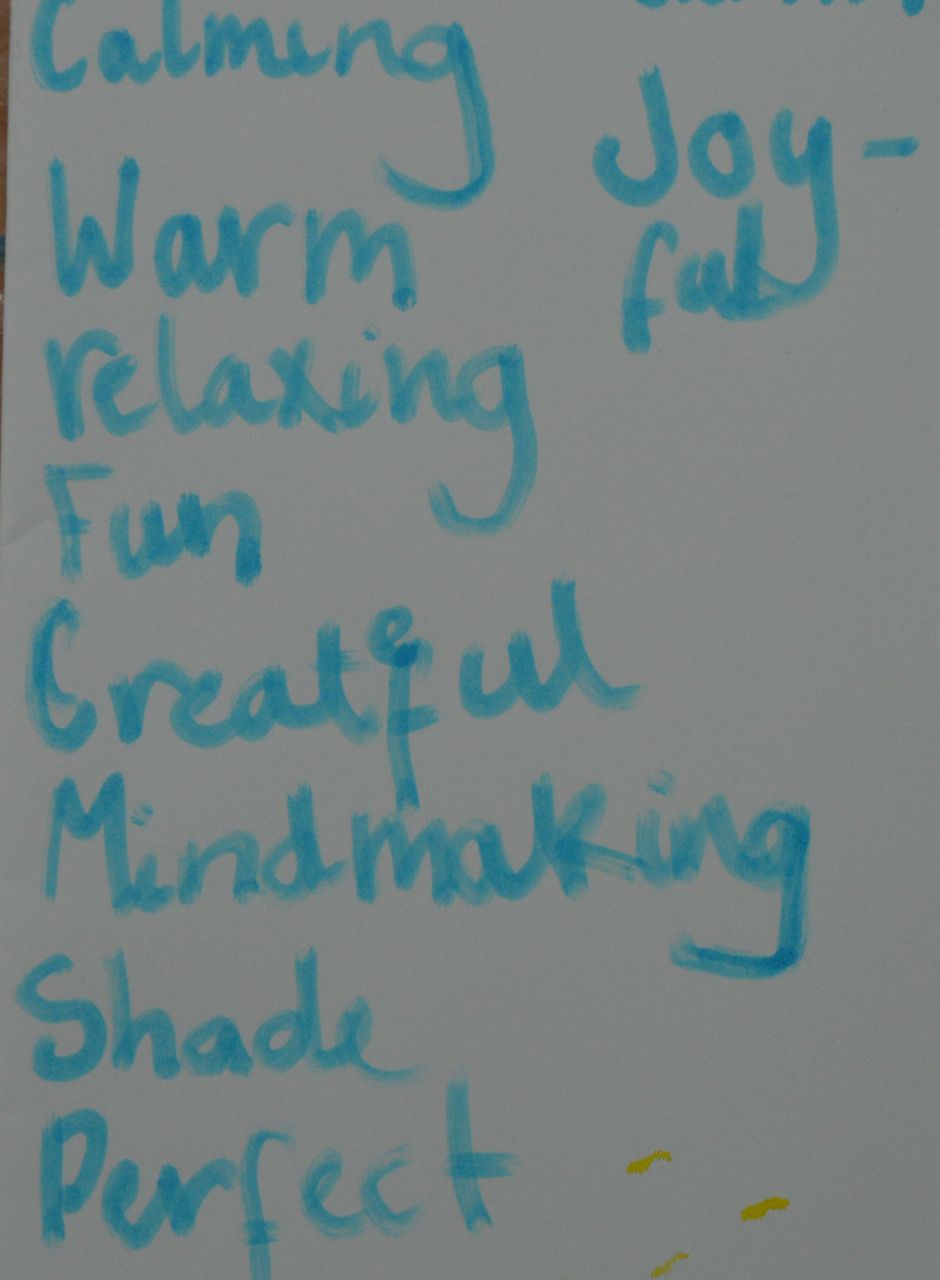 Calming
Warm
relaxing
Fun
Createful
Mindmaking
Shade
Perfect
Joy-
ful